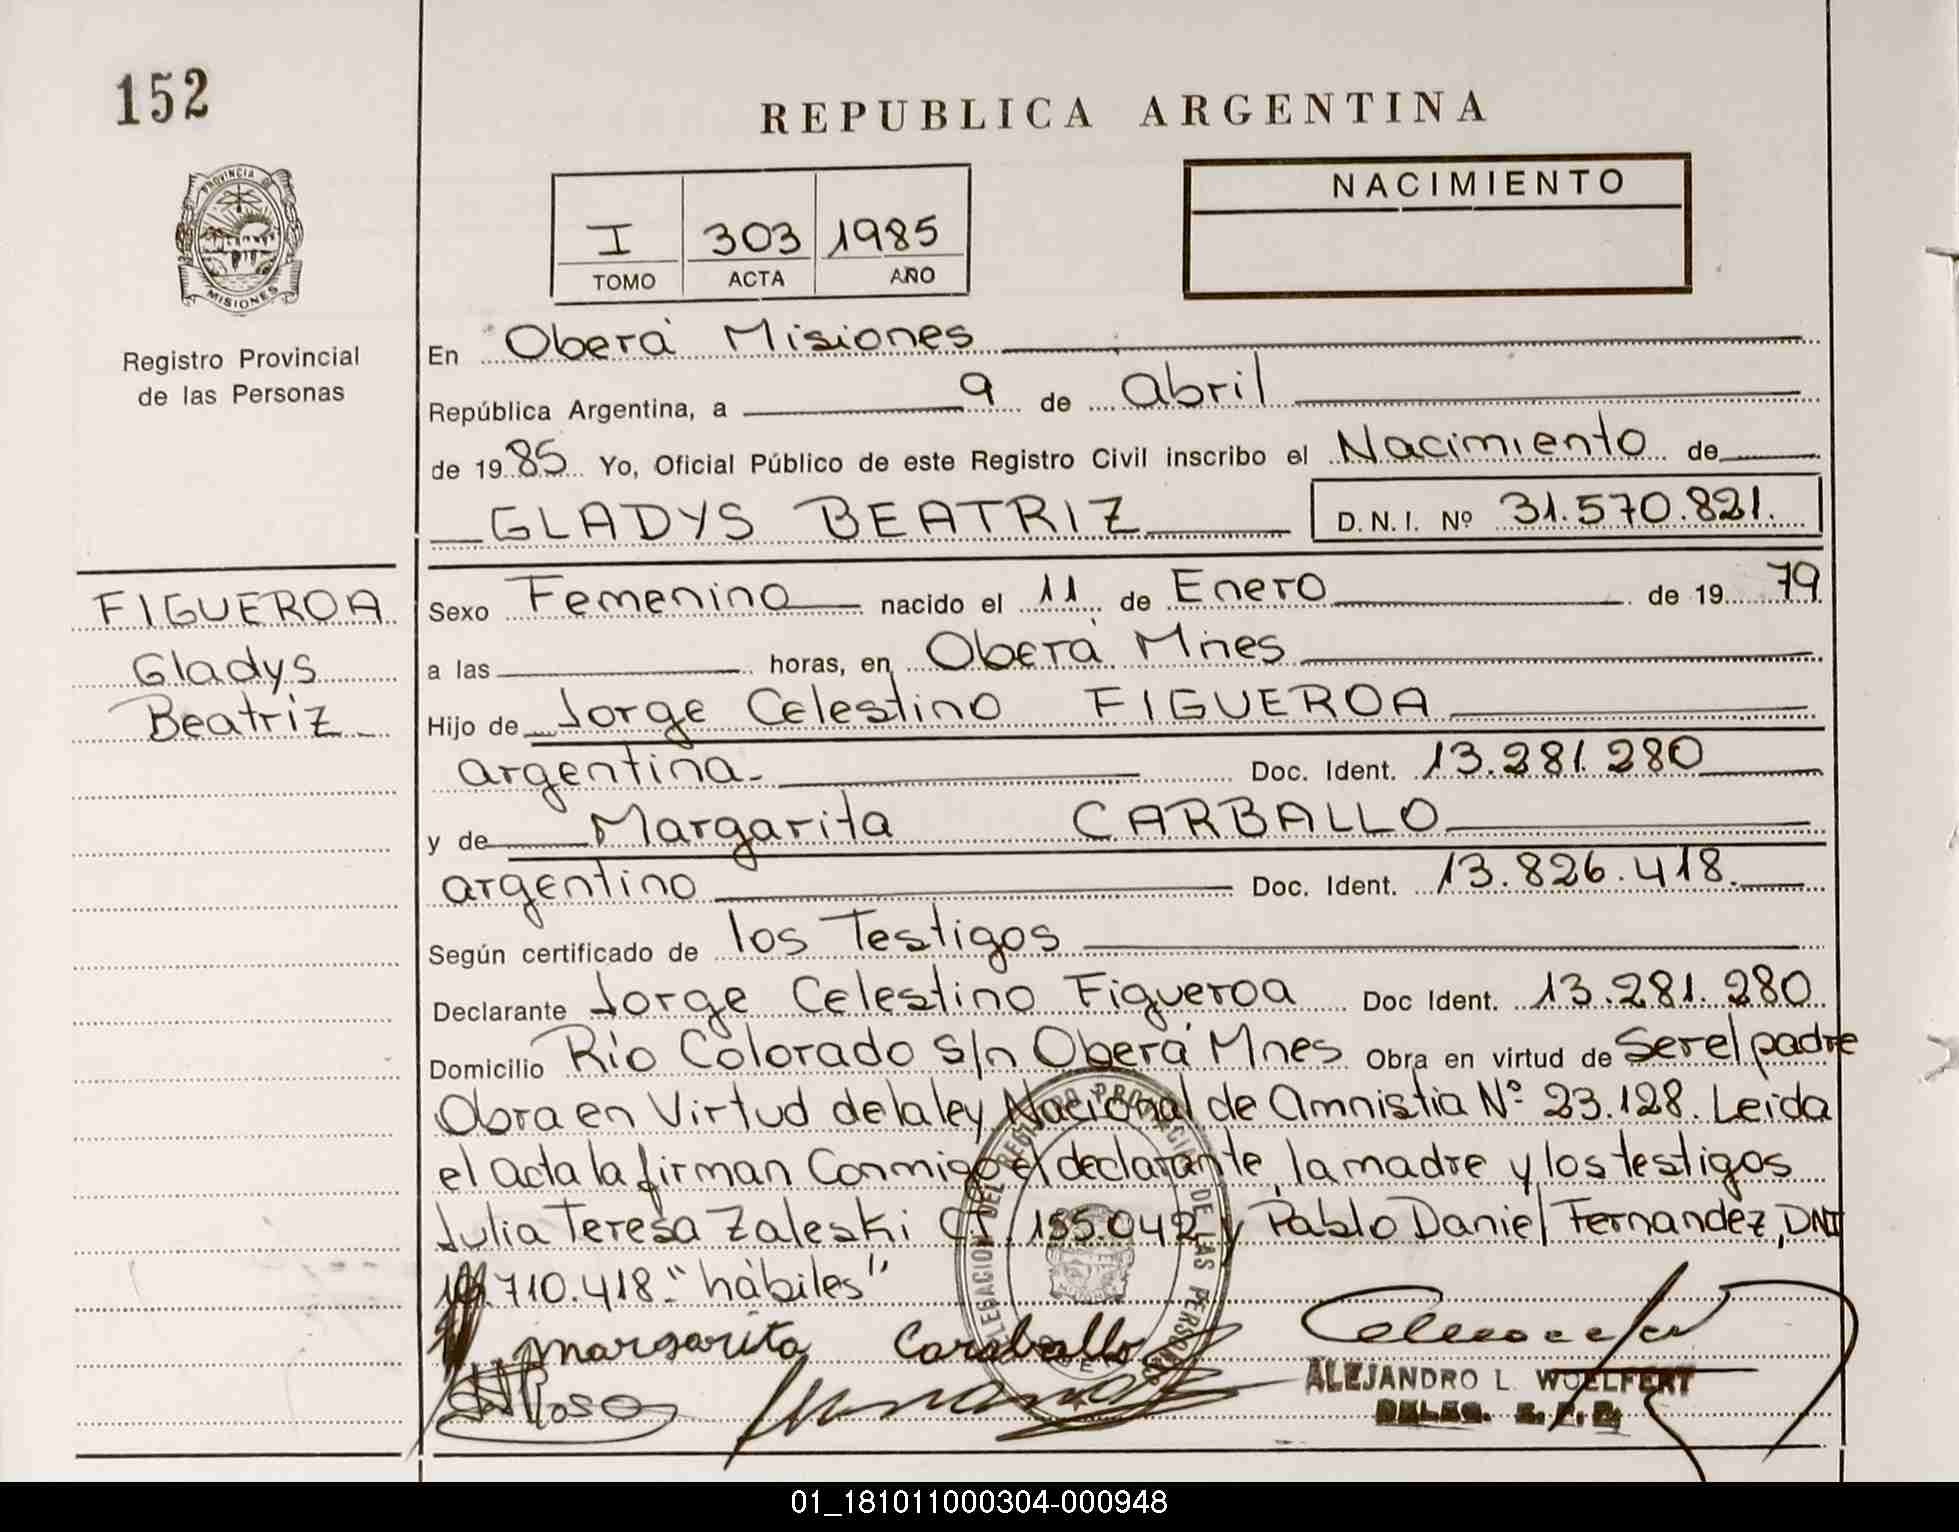 152
REPUBLICA ARGENTINA
PROVINCIA DE
MISIONES
Registro Provincial
de las Personas
NACIMIENTO
I 303 1985
TOMO ACTA AÑO
En Oberá Misiones
República Argentina, a 9 de Abril
de 1985 Yo, Oficial Público de este Registro Civil inscribo el Nacimiento de
GLADYS BEATRIZ D.N.I. Nº 31.570.821.
FIGUEROA
Gladys
Beatriz
Sexo Femenino nacido el 11 de Enero de 1979
a las horas, en Oberá Mnes
Hijo de Jorge Celestino FIGUEROA
argentina Doc. Ident. 13.281.280
y de Margarita CARBALLO
argentino Doc. Ident. 13.826.418.
Según certificado de los Testigos
Declarante Jorge Celestino Figueroa Doc Ident. 13.281.280
Domicilio Río Colorado s/n Oberá Mnes Obra en virtud de Ser el padre
Obra en Virtud de la ley Nacional de Amnistia Nº 23.128. Leida
el acta la firman Conmigo el declarante, la madre y los testigos
Julia Teresa Zaleski C.I. 155.042 y Pablo Daniel Fernandez, DNI
.710.418. "hábiles"
margarita Caraballo
ALEJANDRO L. WOELFERT
DELEGACION DEL REGISTRO PROVINCIAL DE LAS PERSONAS
01_181011000304-000948